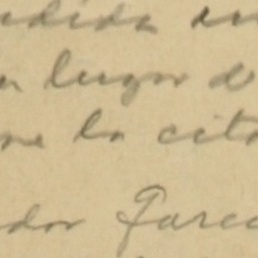 dida en
n lugar d
ne la cita
dor Garc